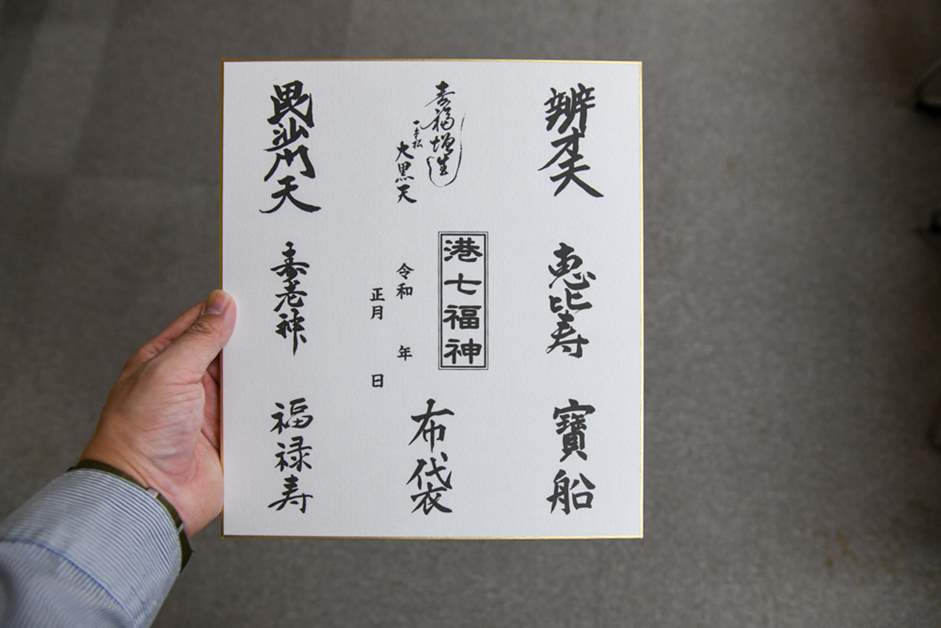 辨才天
恵比寿
寶船
一本松
大黒天
港七福神
令和 年
正月 日
布袋
毘沙門天
寿老神
福禄寿